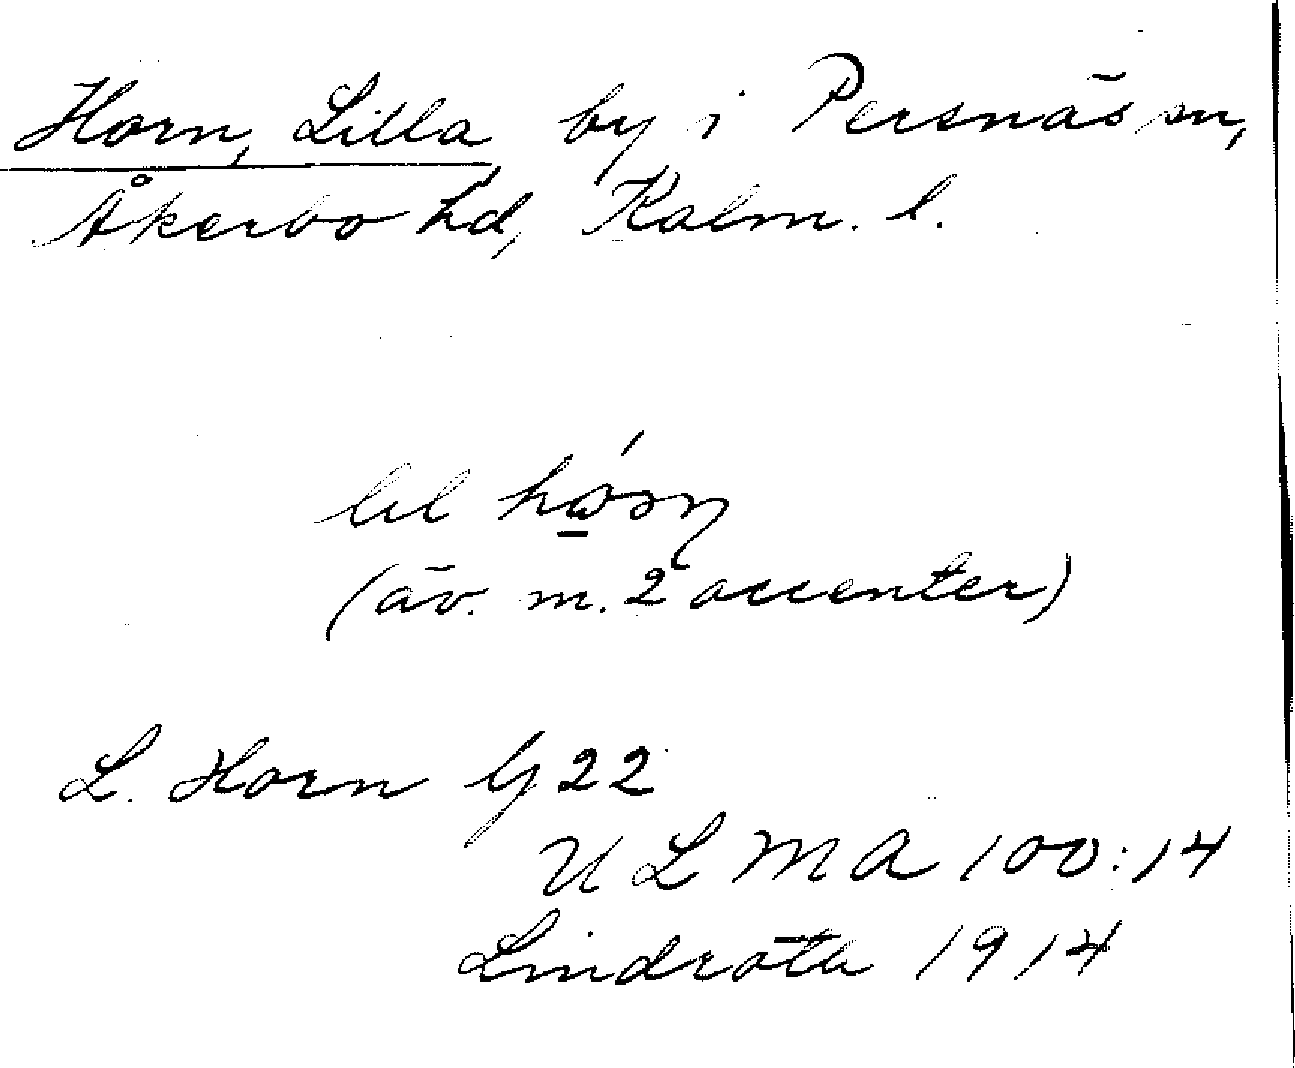 Horn, Lilla by i Persnäs sn,
Åkerbo hd, Kalm. l.
lil hósn
(äv. m. 2 accenter)
L. Horn G 22
ULMA 100:14
Lindroth 1914